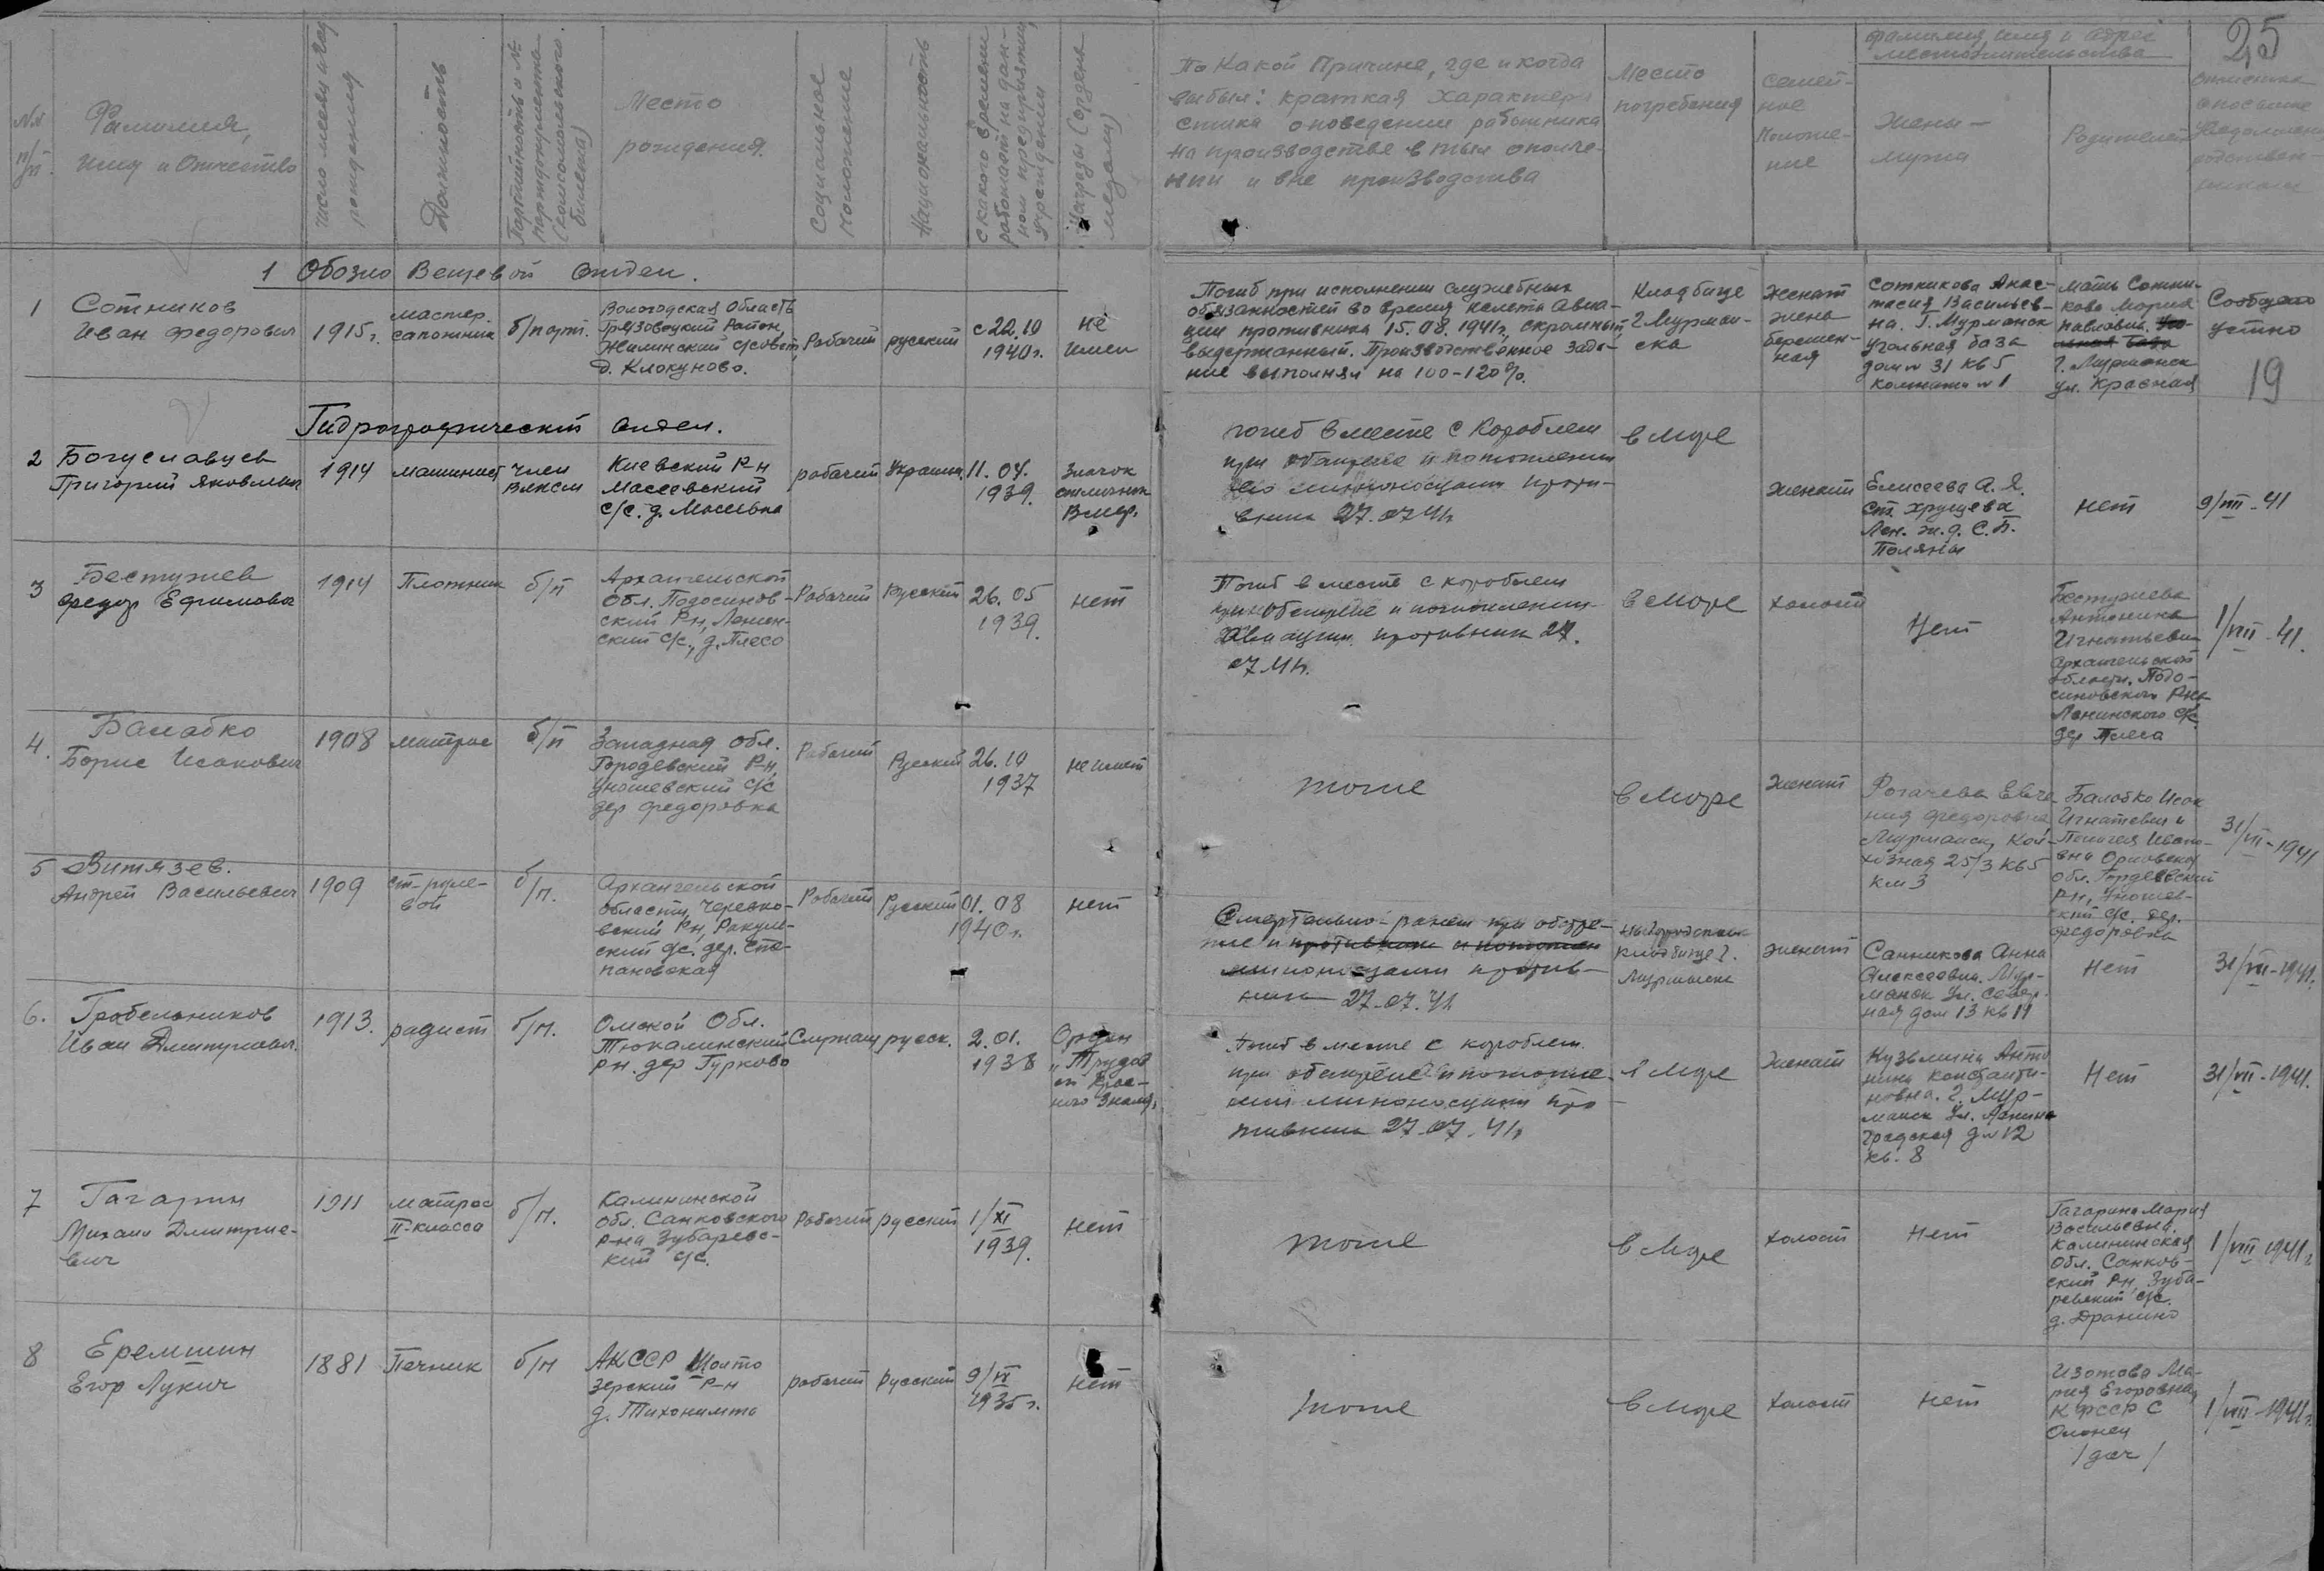 25
№№ п/п
Фамилия,
Имя и Отчество
число месяц и год
рождения
Должность
Партийность и №
партдокумента
(комсомольского
билета)
Место
рождения.
Социальное
положение
Национальность
с какого времени
работает на дан-
ном предприятии,
учреждении
Награды (ордена
медали)
По какой Причине, где и когда
выбыл: краткая характери
стика о поведении работника
на производстве в тылу ополче-
нии и вне производства
Место
погребения
семей-
ное
положе-
ние
фамилия, имя и адрес
местожительства
Жены-
мужа
Родителей
отметка
о посылке
уведомлен
родствен
никам
1 Обозно Вещевой отдел.
1
Сотников
Иван Федорович
1915г.
мастер.
сапожник
б/парт.
Вологодская область
Грязовецкий Район,
Жилинский с/совет,
д. Клокуново.
Рабочий
русский
с 22.10
1940г.
не
имел
Погиб при исполнении служебных
обязанностей во время налета Авиа-
ции противника 15.08.1941г., скромный,
выдержанный. Производственное зада-
ние выполнял на 100-120%.
Кладбище
г. Мурман-
ска
Женат
жена
беремен-
ная
Сотникова Анас-
тасия Васильев-
на. Г. Мурманск
Угольная база
дом № 31 кв 5
комната № 1
мать Сотни-
кова Мария
Павловна.
г. Мурманск
ул. Красная
Сообщено
устно
19
Гидрографический отдел.
2
Богуславцев
Григорий Яковлевич
1914
машинист
член
ВЛКСМ
Киевский Р-н
Масеевский
с/с. д. Масевка
рабочий
Украин.
11.04.
1939.
Значок
отличник
В.мор.
погиб вместе с Кораблем
при обстреле и потоплении
его миноносцами проти-
вника 27.07.41г
в море
женат
Елисеева А. Я.
ст. Хрущева
Лен. ж.д. С.П.
Поляны
нет
9/VIII-41
3
Бестужев
Федор Ефимович
1914
Плотник
б/п
Архангельской
Обл. Подосинов-
ский Р-н, Ленин-
ский с/с., д. Плесо
Рабочий
Русский
26.05
1939.
нет
Погиб вместе с кораблем
при обстреле и потоплении
Авиации противник 27.
07.41г.
в море
холост
Нет
Бестужева
Антонина
Игнатьевн
Архангельской
области. Подо-
синовского Р-на
Ленинского с/с
дер Плеса
1/VIII-41.
4.
Балабко
Борис Исакович
1908
матрос
б/п
Западная Обл.
Городевский Р-н
Уношевский с/с
дер Федоровка
Рабочий
Русский
26.10
1937
не имеет
тоже
в море
Женат
Рогачева Евге
ния Федоровна
Мурманск, Кол-
хозная 25/3 кв 5
км 3
Балабко Исак
Игнатевич и
Пелагея Ивано-
вна Орловской
обл. Гордеевский
Р-н, Уношев-
ский с/с. дер.
Федоровка
31/VII-1941
5
Витязев.
Андрей Васильевич
1909
ст-руле-
вой
б/п.
Архангельской
области, Черевко-
вский Р-н, Ракуль-
ский с/с. дер. Сте-
пановская
Рабочий
Русский
01.08
1940г.
нет
Смертельно-ранен при обстре-
ле и противником и потоплен
миноносцами против-
ника 27.07.41г
на городском
кладбище г.
Мурманска
женат
Санникова Анна
Алексеевна. Мур-
манск ул. Север-
ная дом 13 кв 19
Нет
31/VII-1941.
6.
Грабельников
Иван Дмитриевич.
1913.
радист
б/п.
Омской Обл.
Тюкалинский
р-н. дер Гурково
Служащ
русск.
2.01.
1938
Орден
„Трудов
ого Крас-
ного Знамя"
Погиб вместе с кораблем.
при обстреле и потопле-
нии миноносцами про-
тивника 27.07.41г
в море
Женат
Кузьмина Анто
нина Константи-
новна. г. Мур-
манск ул. Ленин
градская д № 12
кв. 8
Нет
31/VII-1941.
7
Гагарин
Михаил Дмитрие-
вич
1911
матрос
II-класса
б/п.
Калининской
обл. Санковского
р-на Зубаревс-
кий с/с.
Рабочий
русский
1/XI
1939.
нет
тоже
в море
холост
Нет
Гагарина Мария
Васильевна.
Калининская
обл. Санков-
ский Р-н, Зуба-
ревский с/с.
д. Дранино
1/VIII 1941г
8
Еремшин
Егор Лукич
1881
Печник
б/п
АКССР Шолто
зерский Р-н
д. Тихониемто
рабочий
русский
9/IV
1935г.
нет
тоже
в море
холост
нет
Изотова Ма-
рия Егоровна,
К ФССР С
Олонец
/доч/
1/VIII-1941г.